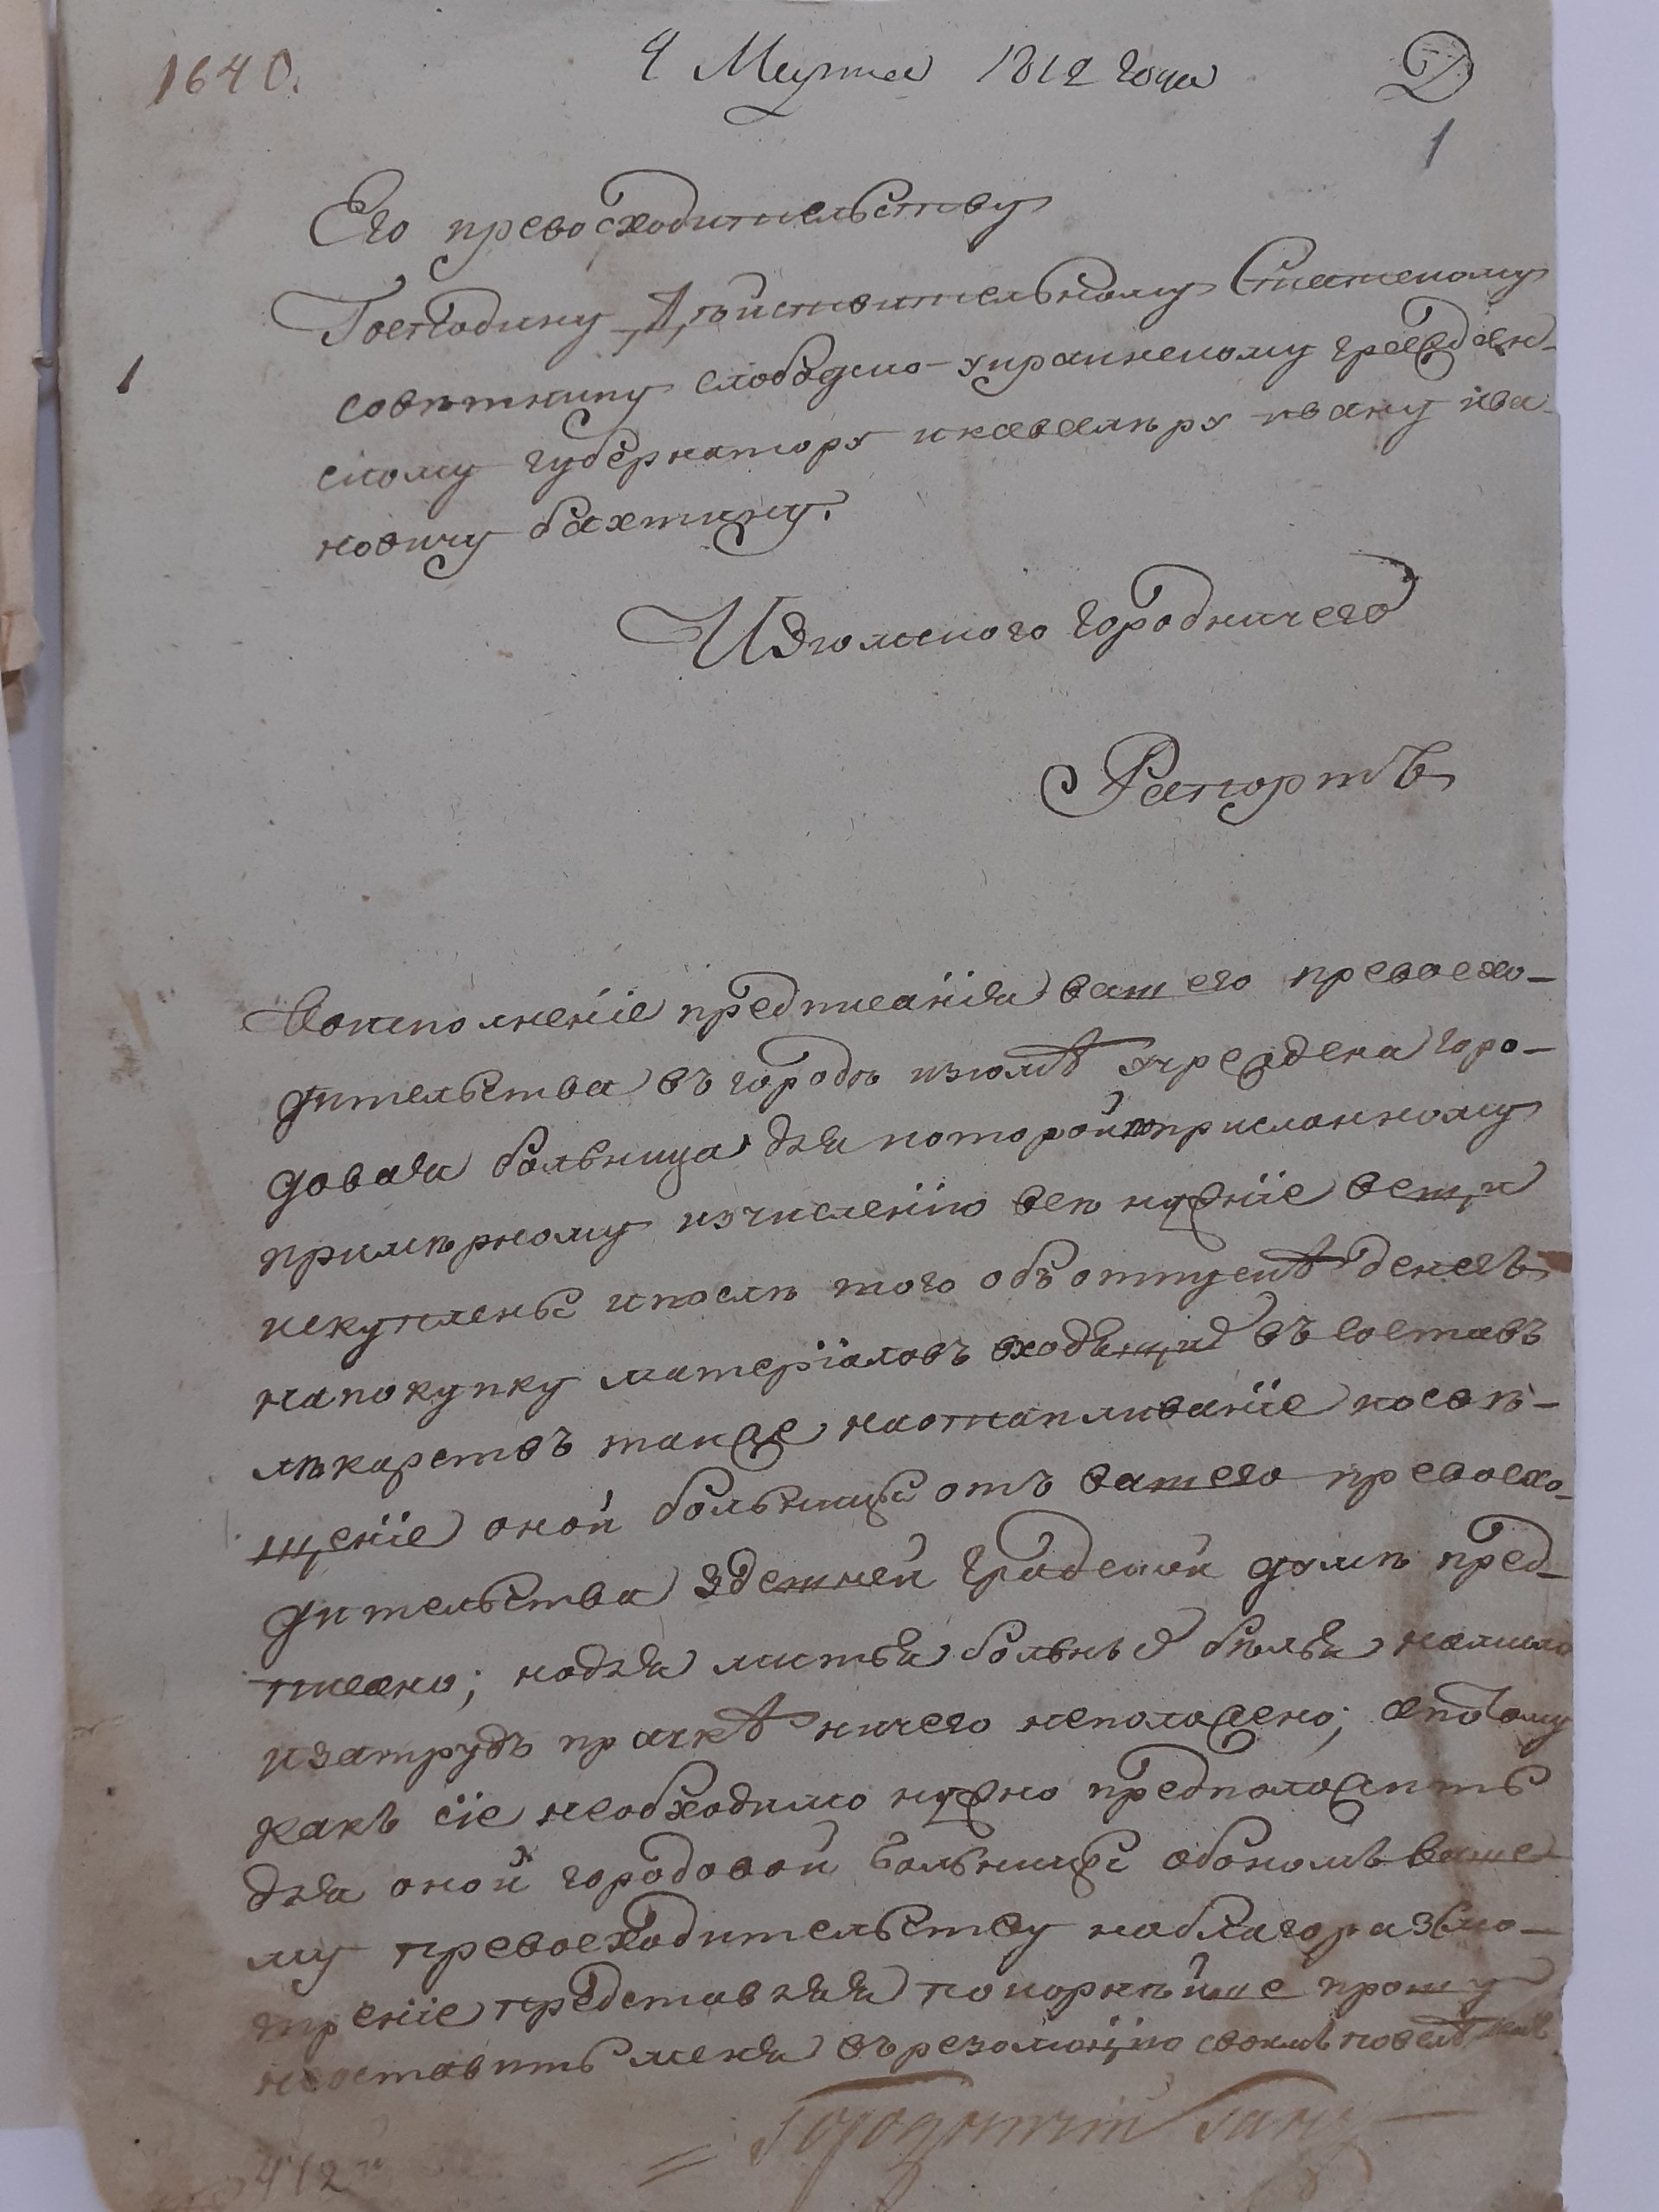 1640.
4 Марта 1812 года
1
Его превосходительству
Господину Дѣйствительному Статскому
1
совѣтнику слободско-украинскому граждан-
скому губернатору и кавалѣру ивану ива-
новичу бахтину.
Изюмского городничего
Рапортъ
Воисполненіе предписанія вашего превосхо-
дительства въ городѣ изюмѣ учреждена горо-
довая больница для которой поприсланному
примѣрному изчисленію всѣ нужніе вещи
искуплены и послѣ того объ отпускѣ денегъ
на покупку матеріаловъ входящих въ составъ
лѣкарствъ также наотапливаніе и освѣ-
щеніе оной больницы отъ вашего превосхо-
дительства здешней градской думѣ пред-
писано; но для митья больных бѣлья намило
и затрудъ прачкѣ ничего неположено; апотому
какъ сіе необходимо нужно предположить
для оной городовой больницы обономъ ваше-
му превосходительству на благоразсмо-
треніе представляя покорнѣйше прошу
неоставить меня въ резолюцію своимъ повелѣніемъ
Городничий